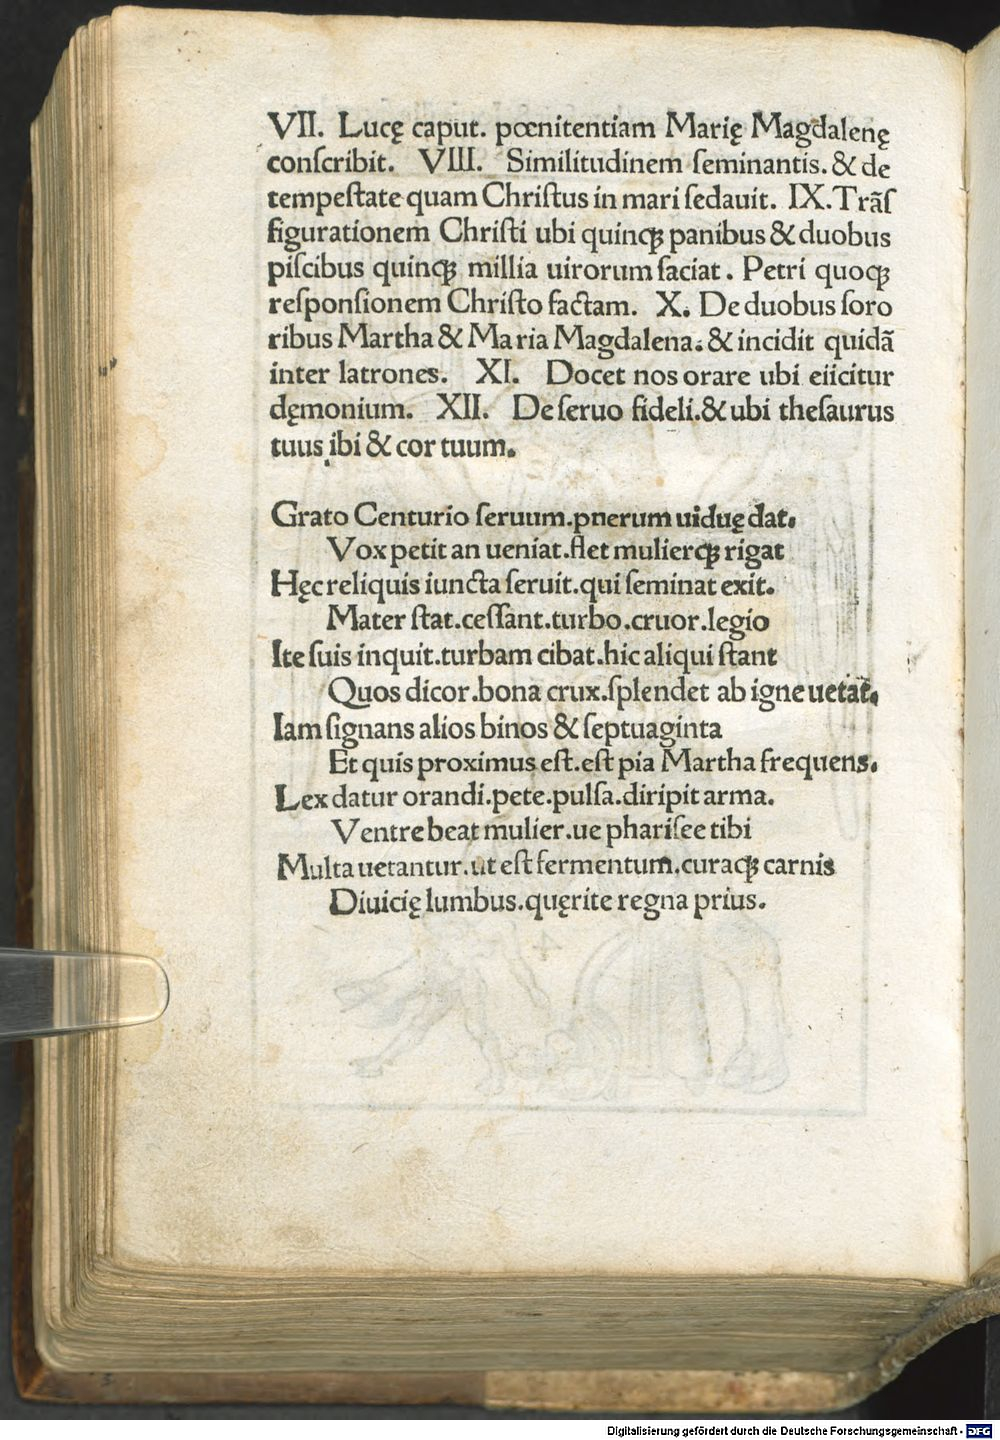 VII. Lucę caput. pœnitentiam Marię Magdalenę
conſcribit. VIII. Similitudinem ſeminantis. & de
tempeſtate quam Chriſtus in mari ſedauit. IX. Trãſ
figurationem Chriſti ubi quinqꝫ panibus & duobus
piſcibus quinqꝫ millia uirorum ſaciat. Petri quoqꝫ
reſponſionem Chriſto factam. X. De duobus ſoro
ribus Martha & Maria Magdalena. & incidit quidã
inter latrones. XI. Docet nos orare ubi eiicitur
dęmonium. XII. De ſeruo fideli. & ubi theſaurus
tuus ibi & cor tuum.
Grato Centurio ſeruum. pnerum uiduę dat.
Vox petit an ueniat. flet mulierqꝫ rigat
Hęc reliquis iuncta ſeruit. qui ſeminat exit.
Mater ſtat. ceſſant. turbo. cruor. legio
Ite ſuis inquit. turbam cibat. hic aliqui ſtant
Quos dicor. bona crux. ſplendet ab igne uetat.
Iam ſignans alios binos & ſeptuaginta
Et quis proximus eſt. eſt pia Martha frequens.
Lex datur orandi. pete. pulſa. diripit arma.
Ventre beat mulier. ue phariſee tibi
Multa uetantur. ut eſt fermentum. curaqꝫ carnis
Diuicię lumbus. quęrite regna prius.
Digitalisierung gefördert durch die Deutsche Forschungsgemeinschaft - DFG